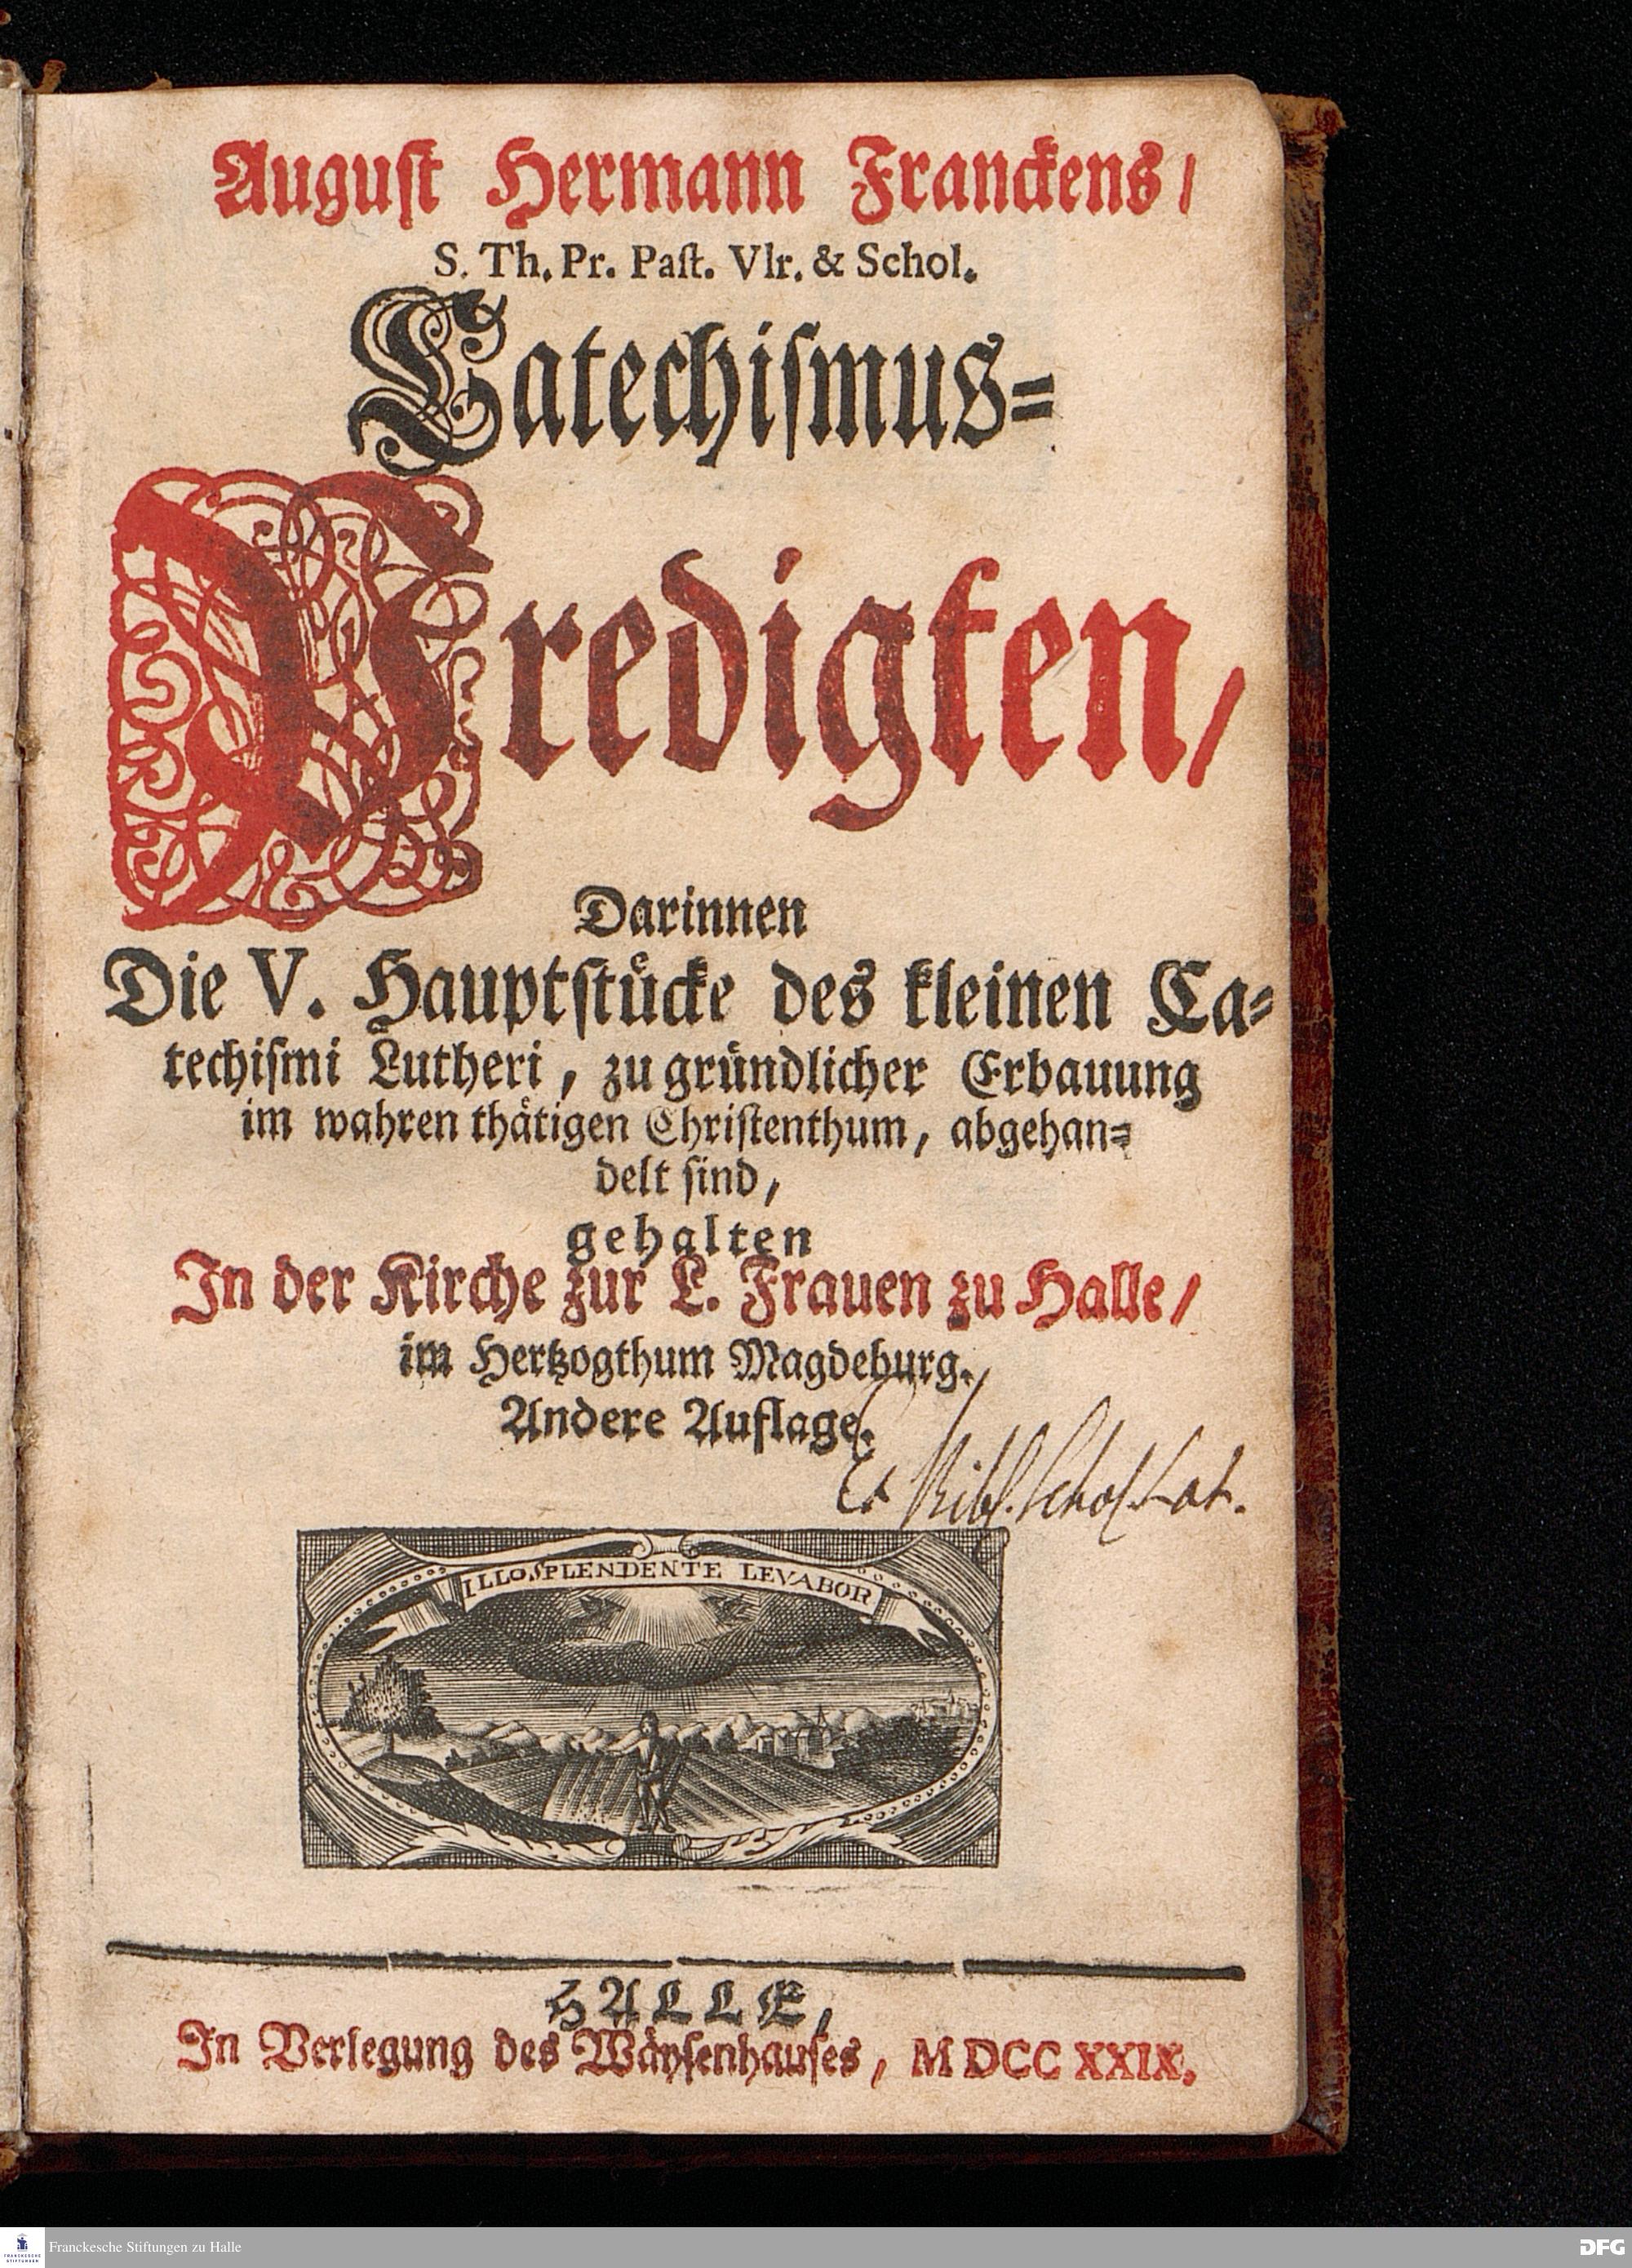 August Hermann Franckens/
S. Th. Pr. Paſt. Vlr. & Schol.
Catechiſmus⸗
Predigten/
Darinnen
Die V. Hauptſtuͤcke des kleinen Ca⸗
techiſmi Lutheri, zu gruͤndlicher Erbauung
im wahren thaͤtigen Chriſtenthum, abgehan⸗
delt ſind,
gehalten
In der Kirche zur L. Frauen zu Halle/
im Hertzogthum Magdeburg.
Andere Auflage.
Ex Bibl. Schol. Lat.
ILLO SPLENDENTE LEVABOR
HALLE,
In Verlegung des Waͤyſenhauſes, MDCCXXIX.
FRANCKESCHE STIFTUNGEN
Franckesche Stiftungen zu Halle
DFG